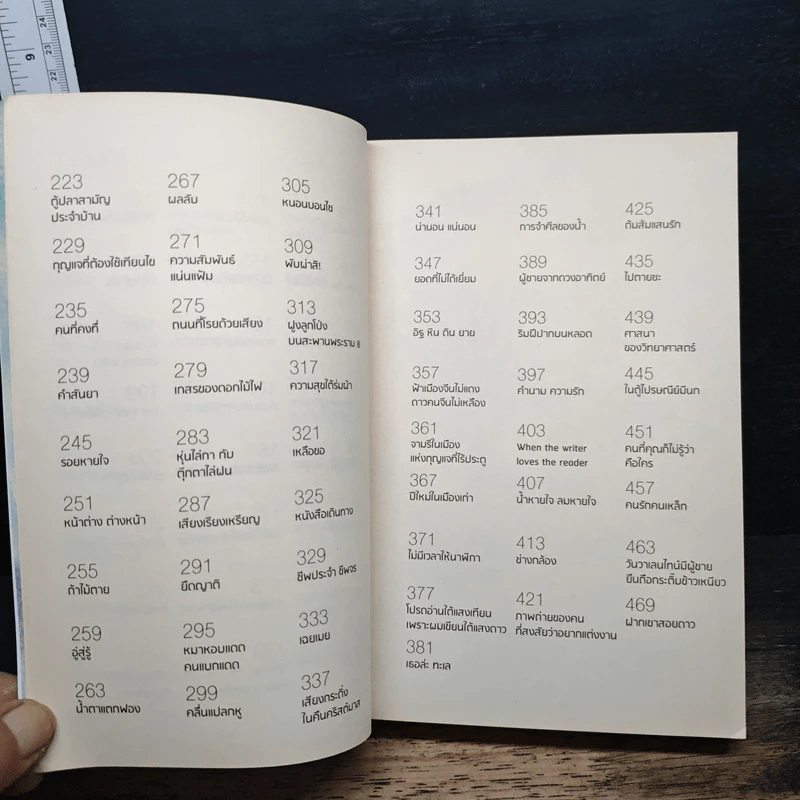 9
24
23
22
223
ตู้ปลาสามัญ
ประจำบ้าน
229
กุญแจที่ต้องใช้เทียนไข
235
คนที่คงที่
239
คำสันยา
245
รอยหายใจ
251
หน้าต่าง ต่างหน้า
255
ถ้าไม้ตาย
259
อู่สู่รู้
263
น้ำตาแตกฟอง
267
ผลลัม
271
ความสัมพันธ์
แน่นแฟ้ม
275
ถนนที่โรยด้วยเสียง
279
เกสรของดอกไม้ไฟ
283
หุ่นไล่กา กับ
ตุ๊กตาไล่ฝน
287
เสียงเรียงเหรียญ
291
ยึดญาติ
295
หมาหอบแดด
คนแบกแดด
299
คลื่นแปลกหู
305
หนอนบอนไซ
309
พับผ่าสิ!
313
ฝูงลูกโป่ง
บนสะพานพระราม 8
317
ความสุขใต้ร่มผ้า
321
เหลือขอ
325
หนังสือเดินทาง
329
ชีพประจำ ชีพจร
333
เฉยเมย
337
เสียงกระดิ่ง
ในคืนคริสต์มาส
341
น่านอน แน่นอน
347
ยอดที่ไม่ได้เยี่ยม
353
อิฐ หิน ดิน ยาย
357
ฟ้าเมืองจีนไม่แดง
ดาวคนจีนไม่เหลือง
361
จามรีในเมือง
แห่งกุญแจที่ไร้ประตู
367
ปีใหม่ในเมืองเก่า
371
ไม่มีเวลาให้นาฬิกา
377
โปรดอ่านใต้แสงเทียน
เพราะผมเขียนใต้แสงดาว
381
เธอล่ะ ทะเล
385
การจำศีลของน้ำ
389
ผู้ชายจากดวงอาทิตย์
393
ริมฝีปากบนหลอด
397
คำนาม ความรัก
403
When the writer
loves the reader
407
น้ำหายใจ ลมหายใจ
413
ช่างกล้อง
421
ภาพถ่ายของคน
ที่สงสัยว่าอยากแต่งงาน
425
ต้มส้มแสนรัก
435
ไปตายซะ
439
ศาสนา
ของวิทยาศาสตร์
445
ในตู้ไปรษณีย์มีนก
451
คนที่คุณก็ไม่รู้ว่า
คือใคร
457
คนรักคนเหล็ก
463
วันวาเลนไทน์มีผู้ชาย
ยืนถือกระติ๊บข้าวเหนียว
469
ฝากเขาสอยดาว